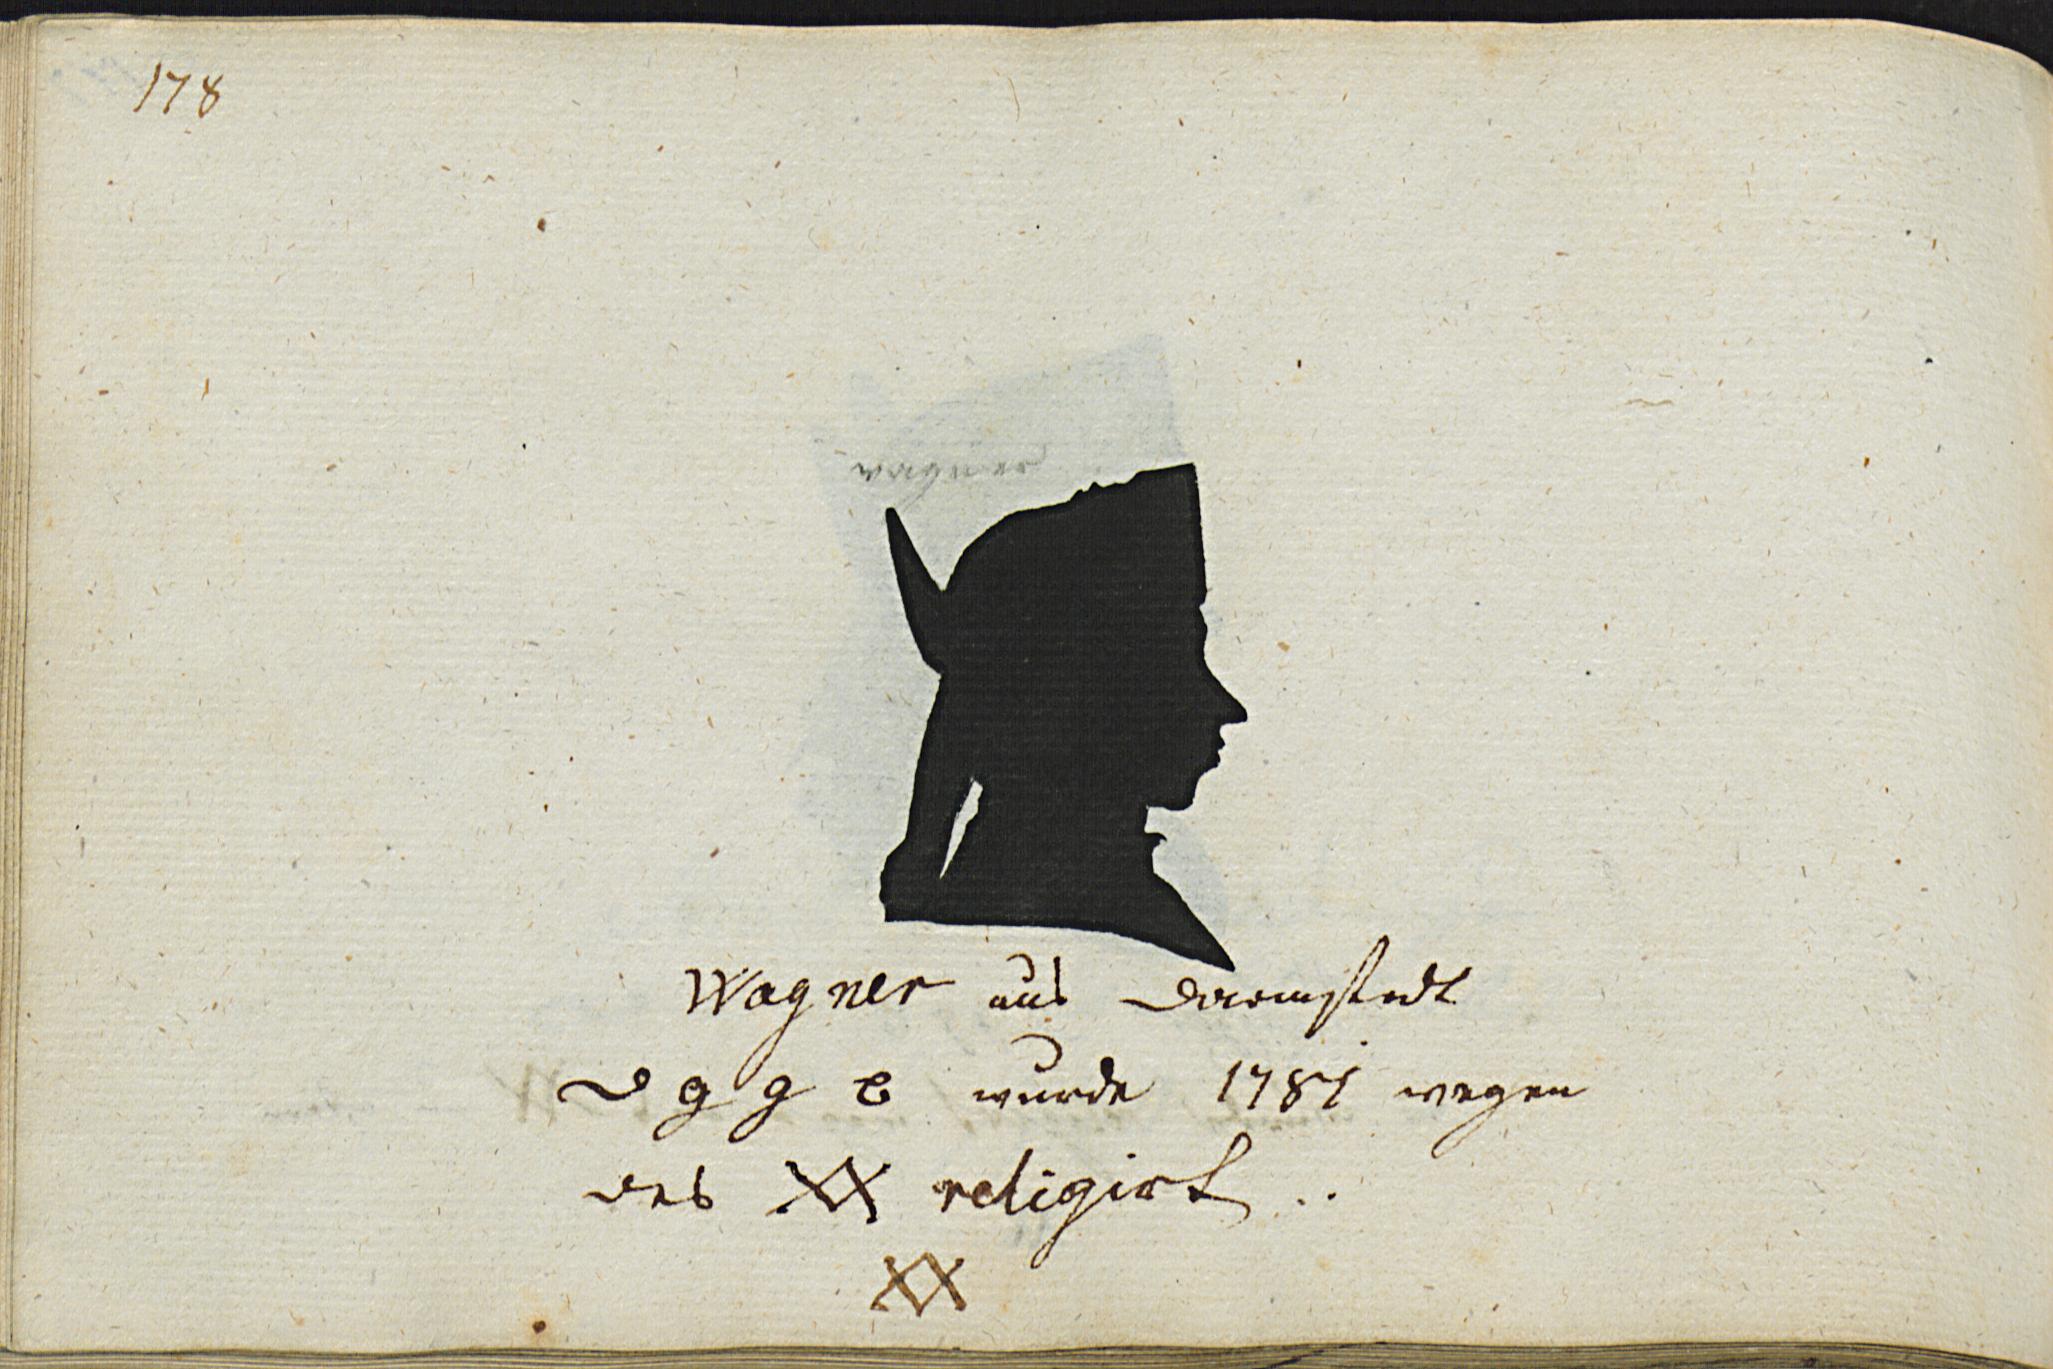 178
wagner
Wagner aus Darmstadt
D g g B wurde 1781 wegen
des XX religirt ..
XX